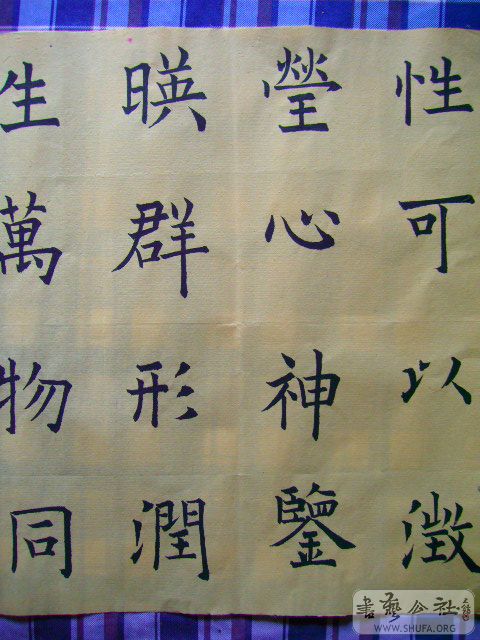 性可以澂
瑩心神鑒
暎群形潤
生萬物同
書藝公社
WWW.SHUFA.ORG